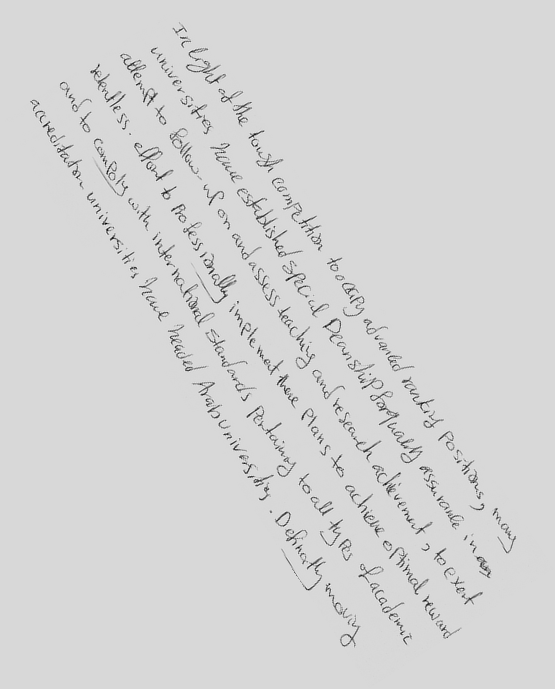 In light of the tough competition to occupy advanced ranking Positions, many
universities have established special Deanship for quality assurance in an
attempt to follow-up on and assess teaching and research achievement, to exert
relentless. effort to Professionally implement there Plans to achieve optimal reward
and to comply with international standards Pertaining to all types of academic
accreditation universities have headed Arab universities. Definitly moving